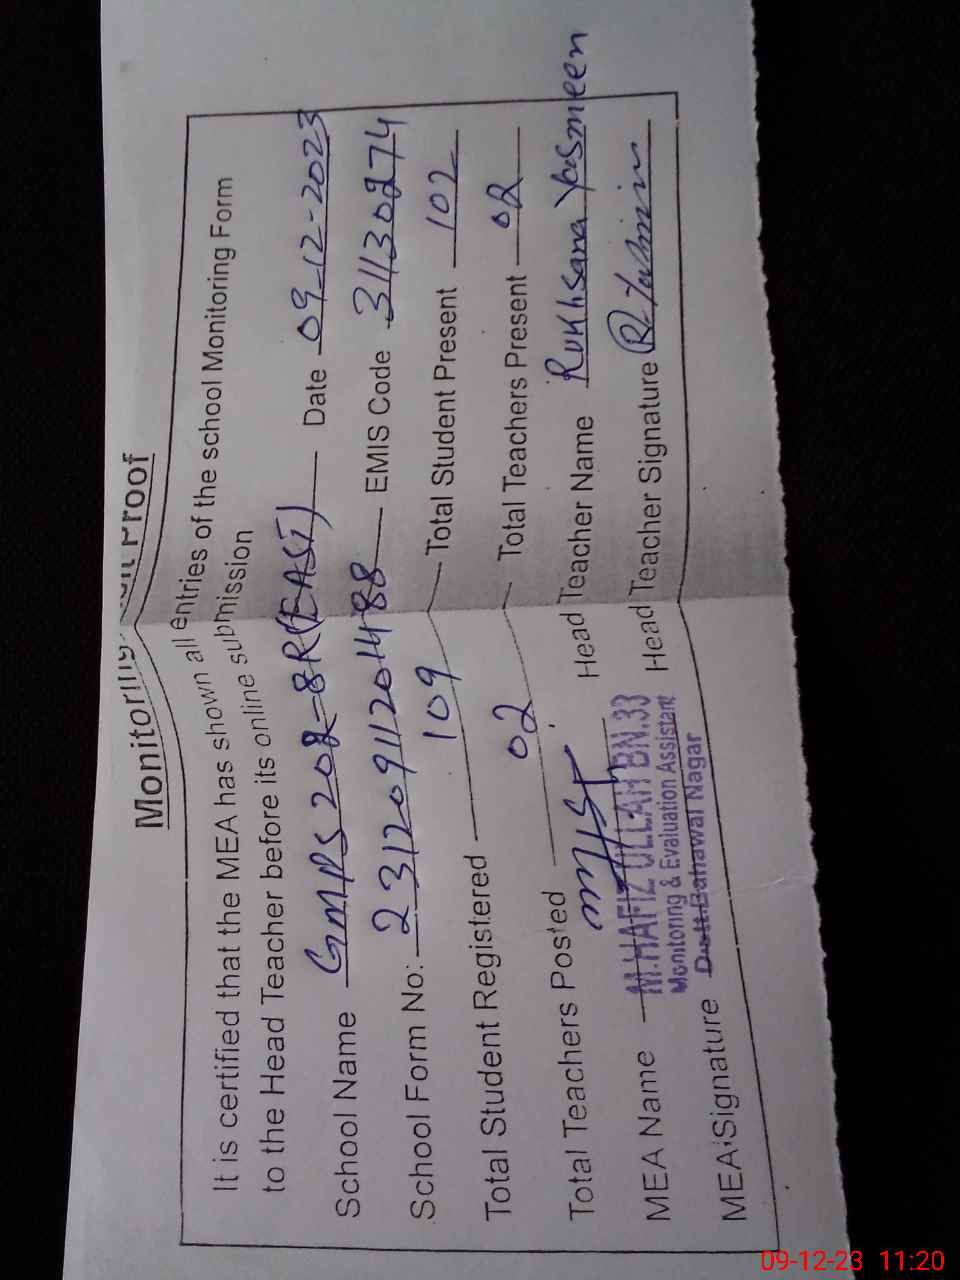 Monitoring Visit Proof
It is certified that the MEA has shown all entries of the school Monitoring Form
to the Head Teacher before its online submission
School Name GMPS 202-8R(EAST) Date 09-12-2023
School Form No: 231209112014188 EMIS Code 31130274
Total Student Registered 109 Total Student Present 102
Total Teachers Posted 02 Total Teachers Present 02
MEA Name M.HAFIZ ULLAH BN.33 Head Teacher Name Rukhsana Yasmeen
Monitoring & Evaluation Assistant
MEA Signature Distt.Bahawal Nagar Head Teacher Signature
09-12-23 11:20